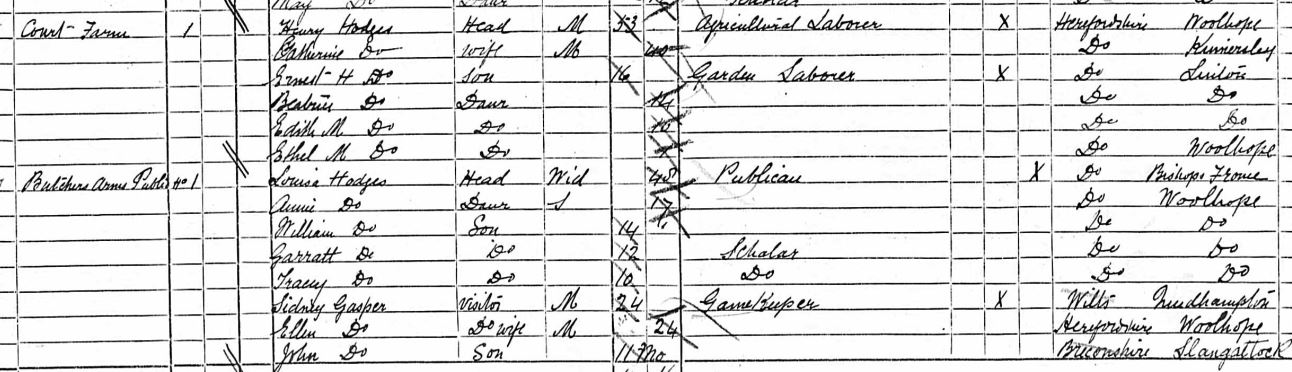 May Do Daur
Court Farm 1 Henry Hodges Head M 53 Agricultural Laborer X Herefordshire Woolhope
Catherine Do wife M 40 Do Kinnersley
Ernest H Do Son 16 Garden Laborer X Do Linton
Beatrice Do Daur 14 Do Do
Edith M Do Do 10 Do Do
Ethel M Do Do Do Woolhope
Butchers Arms Public Ho 1 Louisa Hodges Head Wid 48 Publican X Do Bishops Frome
Annie Do Daur S 17 Do Woolhope
William Do Son 14 Do Do
Garratt Do Do 12 Scholar Do Do
Tracey Do Do 10 Do Do Do
Sidney Gasper Visitor M 24 GameKeeper X Wilts
Ellen Do Do wife M 24 Herefordshire Woolhope
John Do Son 11 Mo Breconshire Llangattock